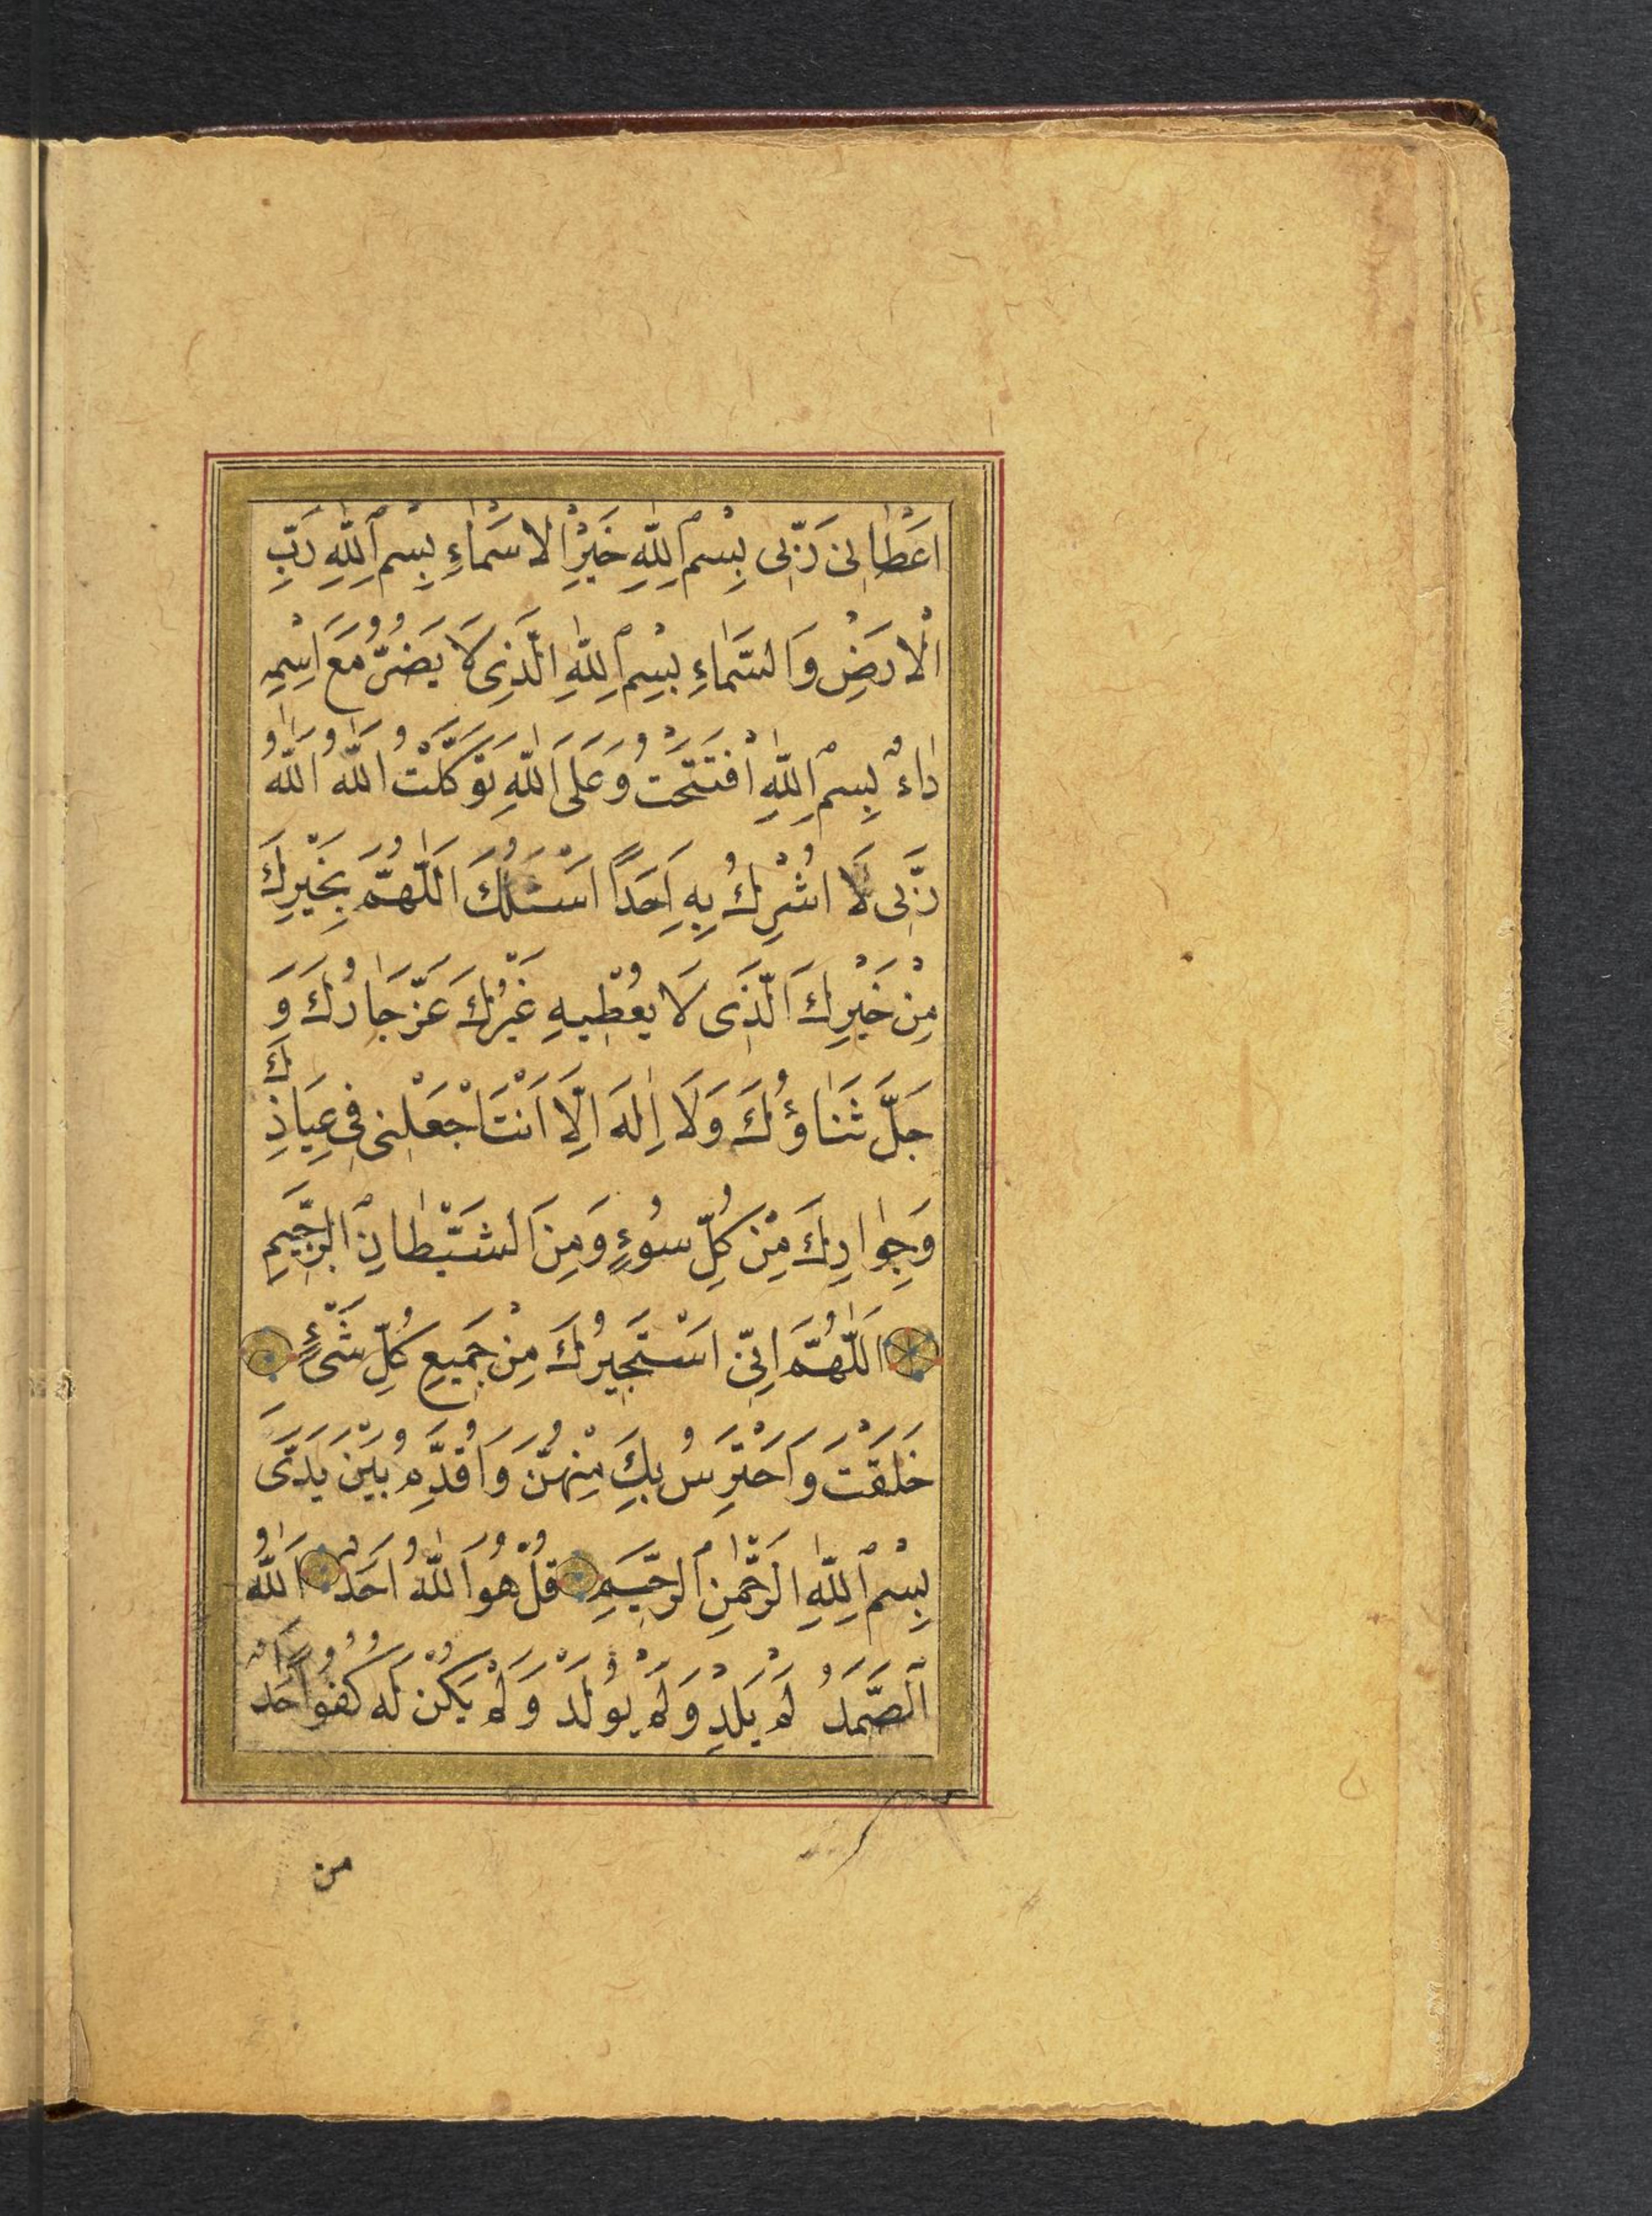 اَعْطَانِی رَبِّی بِسْمِ اللّٰهِ خَیْرِ الْاَسْمَاءِ بِسْمِ اللّٰهِ رَبِّ
الْاَرَضْضِ وَالسَّمَاءِ بِسْمِ اللّٰهِ الَّذِی لَا یَضُرُّ مَعَ اسْمِهِ
دَاءٌ بِسْمِ اللّٰهِ افْتَتَحْتُ وَعَلَی اللّٰهِ تَوَكَّلْتُ اللّٰهُ اللّٰهُ
رَبِّی لَا اُشْرِكُ بِهِ اَحَدًا اَسْئَلُكَ اَللّٰهُمَّ بِخَیْرِكَ
مِنْ خَیْرِكَ الَّذِی لَا یُعْطِیهِ غَیْرُكَ عَزَّ جَارُكَ وَ
جَلَّ ثَنَاؤُكَ وَلَا اِلٰهَ اِلَّا اَنْتَ اجْعَلْنِی فِی عِیَاذِكَ
وَجِوَارِكَ مِنْ كُلِّ سُوءٍ وَمِنَ الشَّیْطَانِ الرَّجِیمِ
اَللّٰهُمَّ اِنِّی اَسْتَجِیرُكَ مِنْ جَمِیعِ كُلِّ شَیْءٍ
خَلَقْتَ وَاَحْتَرِسُ بِكَ مِنْهُنَّ وَاُقَدِّمُ بَیْنَ یَدَیَّ
بِسْمِ اللّٰهِ الرَّحْمٰنِ الرَّحِیمِ قُلْ هُوَ اللّٰهُ اَحَدٌ اَللّٰهُ
الصَّمَدُ لَمْ یَلِدْ وَلَمْ یُولَدْ وَلَمْ یَكُنْ لَهُ كُفُوًا اَحَدٌ
من